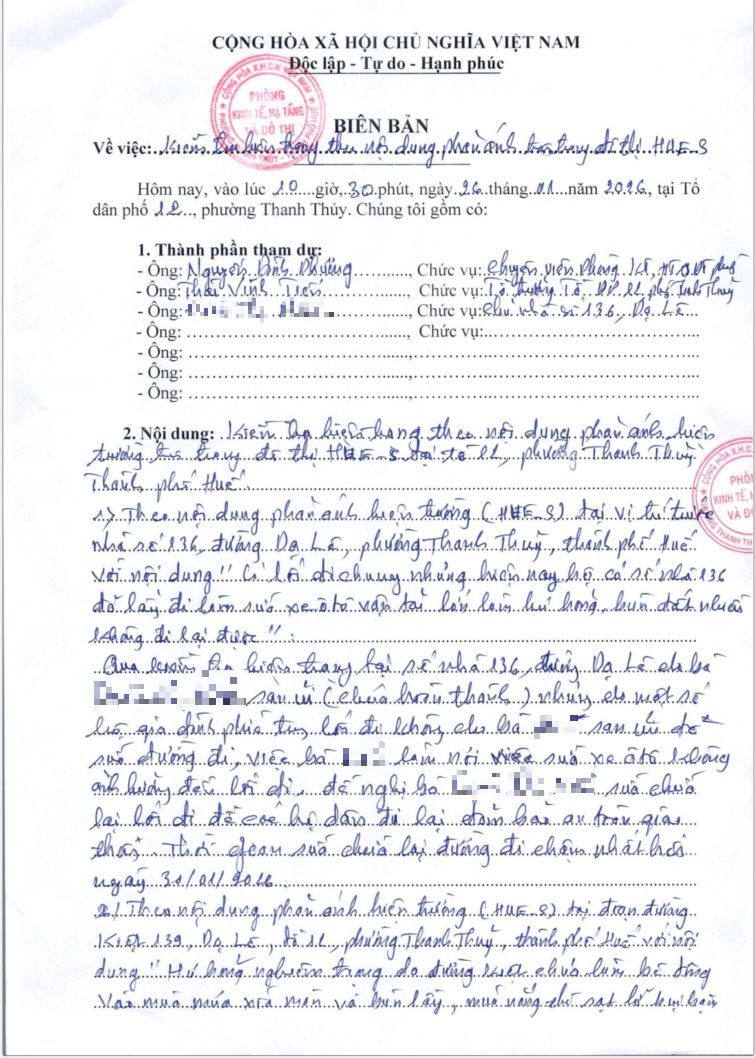 CỘNG HÒA XÃ HỘI CHỦ NGHĨA VIỆT NAM
Độc lập - Tự do - Hạnh phúc
PHÒNG
KINH TẾ, HẠ TẦNG
VÀ ĐÔ THỊ
BIÊN BẢN
Về việc: Kiểm tra hiện trạng theo nội dung phản ánh trên trang đô thị HUE-S
Hôm nay, vào lúc 10 giờ, 30 phút, ngày 26 tháng 01 năm 2026, tại Tổ
dân phố 12, phường Thanh Thủy. Chúng tôi gồm có:
1. Thành phần tham dự:
- Ông: Nguyễn Đình Phương, Chức vụ: Chuyên viên Phòng
- Ông: Thái Vinh Tiến, Chức vụ: Tổ trưởng Tổ
- Ông: Chức vụ: Chủ nhà số 136, Dạ Lê
- Ông: Chức vụ:
- Ông:
- Ông:
- Ông:
2. Nội dung: Kiểm tra hiện trạng theo nội dung phản ánh hiện
tường trên trang đô thị HUE-S tại tổ 12, phường Thanh Thuỷ,
Thành phố Huế
1) Theo nội dung phản ánh hiện tường (HUE-S) tại vị trí trước
nhà số 136, đường Dạ Lê, phường Thanh Thuỷ, thành phố Huế
với nội dung "Có lối đi chung nhưng hiện nay hộ có số nhà 136
đã lấy đi làm sửa xe ô tô vận tải lớn làm hư hỏng, bùn đất nhiều
không đi lại được":
Qua kiểm tra hiện trạng tại số nhà 136, đường Dạ Lê do bà
san ủi (chưa hoàn thành) nhưng do một số
hộ gia đình phía trong lối đi không cho bà san ủi để
sửa đường đi, việc bà làm nơi sửa xe ô tô không
ảnh hưởng đến lối đi, đề nghị bà sửa chữa
lại lối đi để các hộ dân đi lại đảm bảo an toàn giao
thông. Thời gian sửa chữa lại đường đi chậm nhất hết
ngày 30/01/2026
2/ Theo nội dung phản ánh hiện tường (HUE-S) tại đoạn đường
Kiệt 139, Dạ Lê, tổ 12, phường Thanh Thuỷ, thành phố Huế với nội
dung "Hư hỏng nghiêm trọng do đường chưa làm bê tông
Vào mùa mưa xói mòn và bùn lầy, mùa nắng thì sạt lở bụi bặm
PHÒNG
KINH TẾ,
VÀ ĐÔ